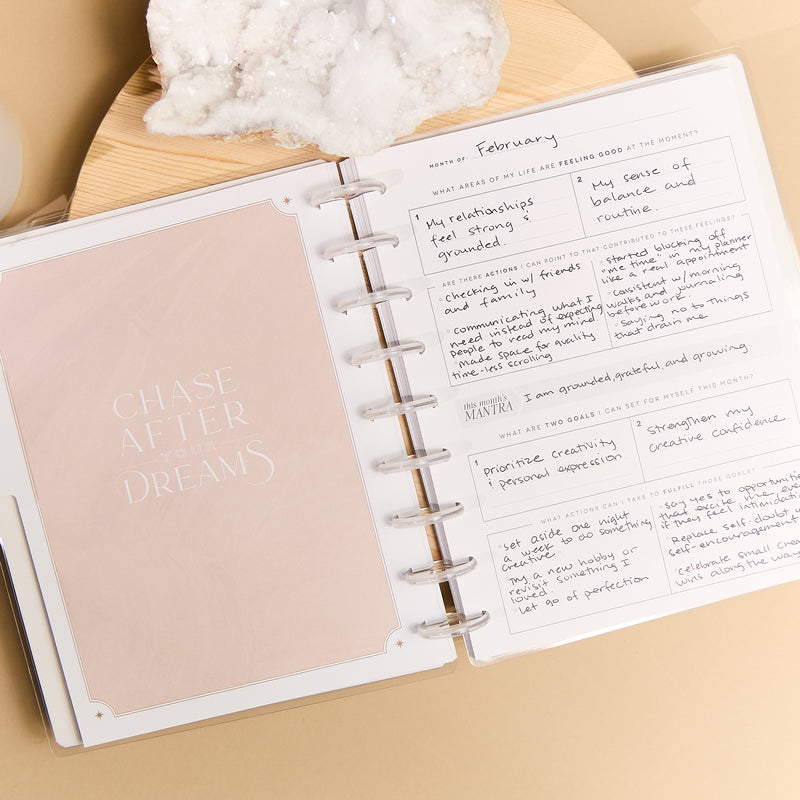 CHASE
AFTER
YOUR
DREAMS
MONTH OF: February
WHAT AREAS OF MY LIFE ARE FEELING GOOD AT THE MOMENT?
1 My relationships
feel strong &
grounded.
2 My sense of
balance and
routine.
ARE THERE ACTIONS I CAN POINT TO THAT CONTRIBUTED TO THESE FEELINGS?
checking in w/ friends
and family
communicating what I
need instead of expecting
people to read my mind.
made space for quality
time-less scrolling
started blocking off
"me time" in my planner
like a real appointment
consistent w/ morning
walks and journaling
before work.
saying no to things
that drain me
this month's
MANTRA
I am grounded, grateful, and growing
WHAT ARE TWO GOALS I CAN SET FOR MYSELF THIS MONTH?
1 Prioritize creativity
& personal expression
2 Strengthen my
creative confidence.
WHAT ACTIONS CAN I TAKE TO FULFILL THOSE GOALS?
set aside one night
a week to do something
creative.
Try a new hobby or
revisit something I
loved.
Let go of perfection
say yes to opportunities
that excite me, even
if they feel intimidating
Replace self-doubt w
self-encouragement
Celebrate small
wins along the way